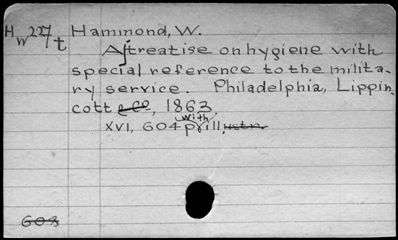 HW227t Hammond, W.
A treatise on hygiene with
special reference to the milita-
ry service. Philadelphia, Lippin
cott & Co, 1863
with
XVI, 604 p ill
603